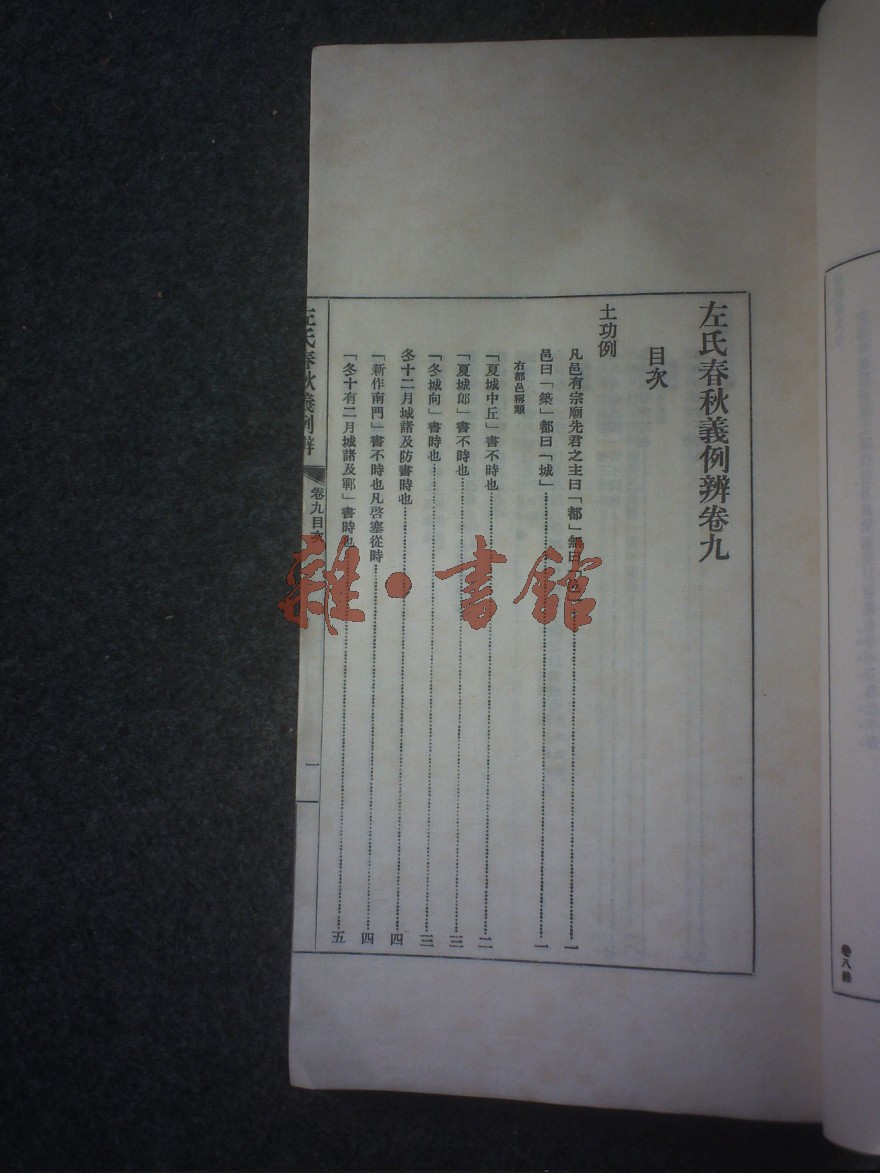 左氏春秋義例辨卷九
目次
土功例
凡邑有宗廟先君之主曰「都」無曰「邑」……一
邑曰「築」都曰「城」……一
右都邑釋類
「夏城中丘」書不時也……二
「夏城郎」書不時也……三
「冬城向」書時也……三
冬十二月城諸及防書時也……四
「新作南門」書不時也凡啓塞從時……四
「冬十有二月城諸及鄆」書時也……五
左氏春秋義例辨
卷九目次
一
卷八終
雜·書館